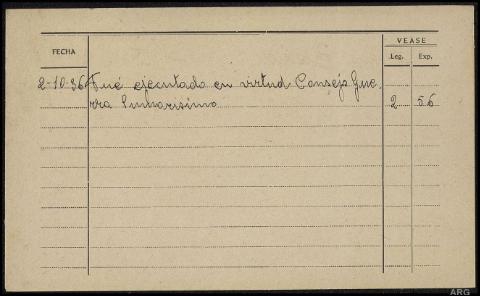 VEASE
FECHA Leg. Exp.
2-10-36 Fué ejecutado en virtud Consejo Gue-
rra Sumarísimo 2 56
ARG